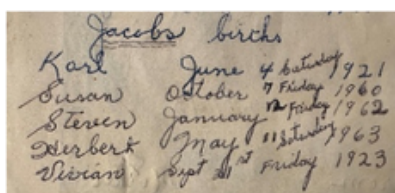 Jacobs births
Karl June 4 Saturday 1921
Susan October 7 Friday 1960
Steven January 12 Friday 1962
Herbert May 11 Saturday 1963
Vivian Sept 21st Friday 1923